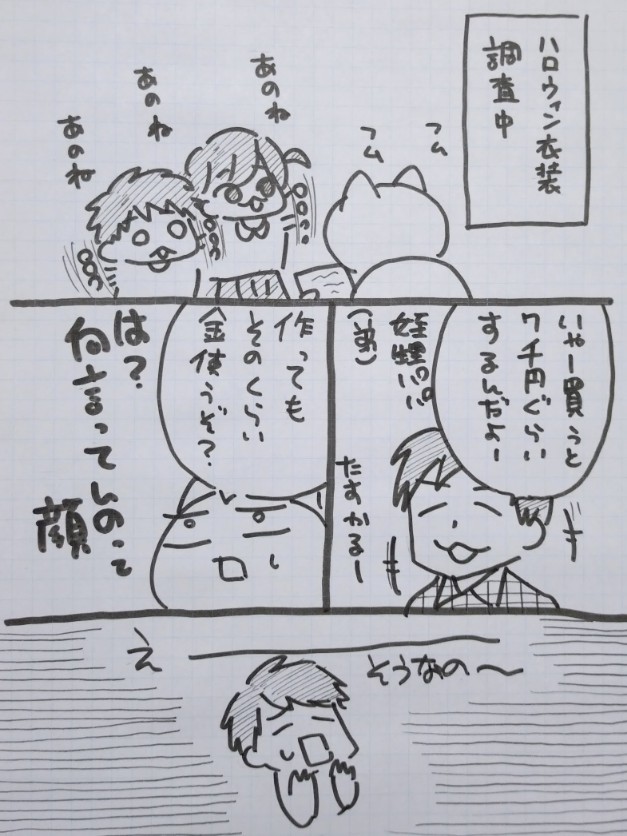 ハロウィン衣装
調査中
フム
フム
あのね
あのね
あのね
いやー買うと
7千円ぐらい
するんだよー
姪甥パパ
(弟)
たすかるー
作っても
そのくらい
金使うぞ?
は?
何言ってんのって
顔
え
そうなの〜